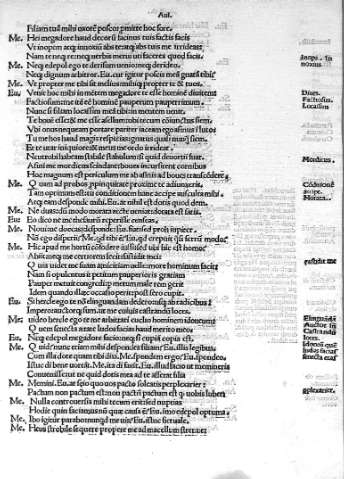 Aul.
Filiam tuā mihi uxorē poscere mitte hoc fore.
Me. Hei megadore haud decorū facinus tuis factis facis
Vt inopem atq; innoxiū abs te atq; abs tuis me irrideas
Nam te neq; re neq; uerbis merui uti faceres quod facis.
Me. Neq; edepol ego te derisum uenio neq; derideo.
Neq; dignum arbitror. Eu. cur igitur poscis meā gnatā tibi
Me. Vt propter me tibi sit melius mihiq; propter te & tuos.
Eu. Venit hoc mihi in mētem megadore te esse hominē diuitem
Factiosum me itē eē hominē pauperum pauperrimum.
Nunc si filiam locassim meā tibi in mentem uenit.
Te bouē esse & me esse asellum ubi tecum cōiunctus siem.
Vbi onus nequeam portare pariter iaceam ego asinus ī luto
Tu me bos haud magis respicias gnatus quasi nunq; siem.
Et te utar iniquiore & meus me ordo irrideat.
Neutrobi habeam stabile stabulum si quid deuortii fuat.
Asini me mordicus scindant boues incursent cornibus
Hoc magnum est periculum me ab asinis ad boues trāscēdere
Me. Quam ad probos ppinquitate proxime te adiunxeris.
Tam optimum est tu conditionem hanc accipe ausculta mihi.
Atq; eam desponde mihi. Eu. at nihil est dotis quod dem.
Me. Ne duas dū modo morata recte ueniat dotata est satis.
Eu. Eo dico ne me thesauros reperisse censeas.
Me. Noui ne doceas desponde. Eu. fiat sed pro iupiter.
Me. Hic apud me hortū cōfodere iussi sed ubi hic est homo
Abiit neq; me certiorem fecit fastidit mei
Quia uidet me suam amicitiam uelle more hominum facit
Nam si opulentus it petitum pauperioris gratiam
Pauper metuit congredi per metum male rem gerit
Idem quando illæc occasio periit post sero cupit.
Eu. Si hercle ego te nō elinguandam dedero usq; ab radicibus
Impero auctorq; sum ut me cuiuis castrandū loces.
Me. Video hercle ego te me arbitrari euclio hominem idoneum
Quem senecta ætate ludos facias haud merito meo
Eu. Neq; edepol megadore facio neq; si cupiā copia est.
Me. Quid nunc etiam mihi despondes filiam Eu. illis legibus
Cum illa dote quam tibi dixi. Me. spondem ergo Eu. spondeo.
Istuc di bene uortāt. Me. ita di faxit. Eu. illud facito ut memineris
Conuenisse ut ne quid dotis mea ad te afferat filia
Me. Memini. Eu. at scio quo uos pacto soleatis perplexarier
Pactum non pactum est nō pactū pactum est q̄ uobis lubet
Me. Nulla controuersia mihi tecum erit sed nuptias
Hodie quin faciamus nū quæ causa ē Eu. imo edepol optuma.
Me. Ibo igitur parabo nunqd me uis Eu. istuc fiet uale.
Me. Heus strobile sequere propere me ad macellum strenue
Inops. In
noxius.
Diues.
Factiosus.
Locassim
Mordicus.
Morata.
Elinguādā
Auctor. In
Castrandū
loces.
Idoneū quē
ludas facias